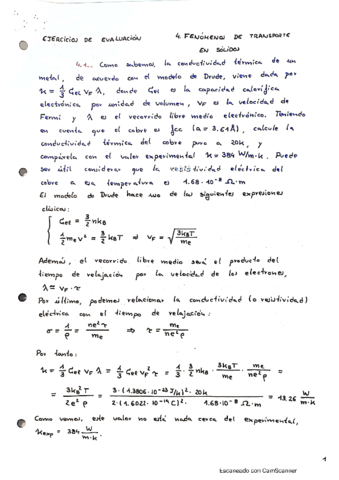 EJERCICIOS DE EVALUACIÓN
4. FENÓMENOS DE TRANSPORTE
EN SÓLIDOS
4.1.- Como sabemos, la conductividad térmica de un
metal, de acuerdo con el modelo de Drude, viene dada por
κ = 1/3 Cel vF λ, donde Cel es la capacidad calorífica
electrónica por unidad de volumen, vF es la velocidad de
Fermi y λ es el recorrido libre medio electrónico. Teniendo
en cuenta que el cobre es fcc (a = 3.61Å), calcule la
conductividad térmica del cobre puro a 20K, y
compárela con el valor experimental κ = 384 W/m·k. Puede
ser útil considerar que la resistividad eléctrica del
cobre a esa temperatura es 1.68·10⁻⁸ Ω·m
El modelo de Drude hace uso de las siguientes expresiones
clásicas:
Cel = 3/2 nkB
1/2 me v² = 3/2 kBT ⇒ vF = √(3kBT/me)
Además, el recorrido libre medio será el producto del
tiempo de relajación por la velocidad de los electrones,
λ = vF · τ
Por último, podemos relacionar la conductividad (o resistividad)
eléctrica con el tiempo de relajación:
σ = 1/ρ = ne²τ/me ⇒ τ = me/ne²ρ
Por tanto:
κ = 1/3 Cel vF λ = 1/3 Cel vF² τ = 1/3 · 3/2 nkB · 3kBT/me · me/ne²ρ =
= 3kB²T/2e²ρ = 3·(1.3806·10⁻²³ J/k)²·20k / 2·(1.6022·10⁻¹⁹ C)²·1.68·10⁻⁸ Ω·m = 13.26 W/m·k
Como vemos, este valor no está nada cerca del experimental,
κexp = 384 W/m·k
1
Escaneado con CamScanner